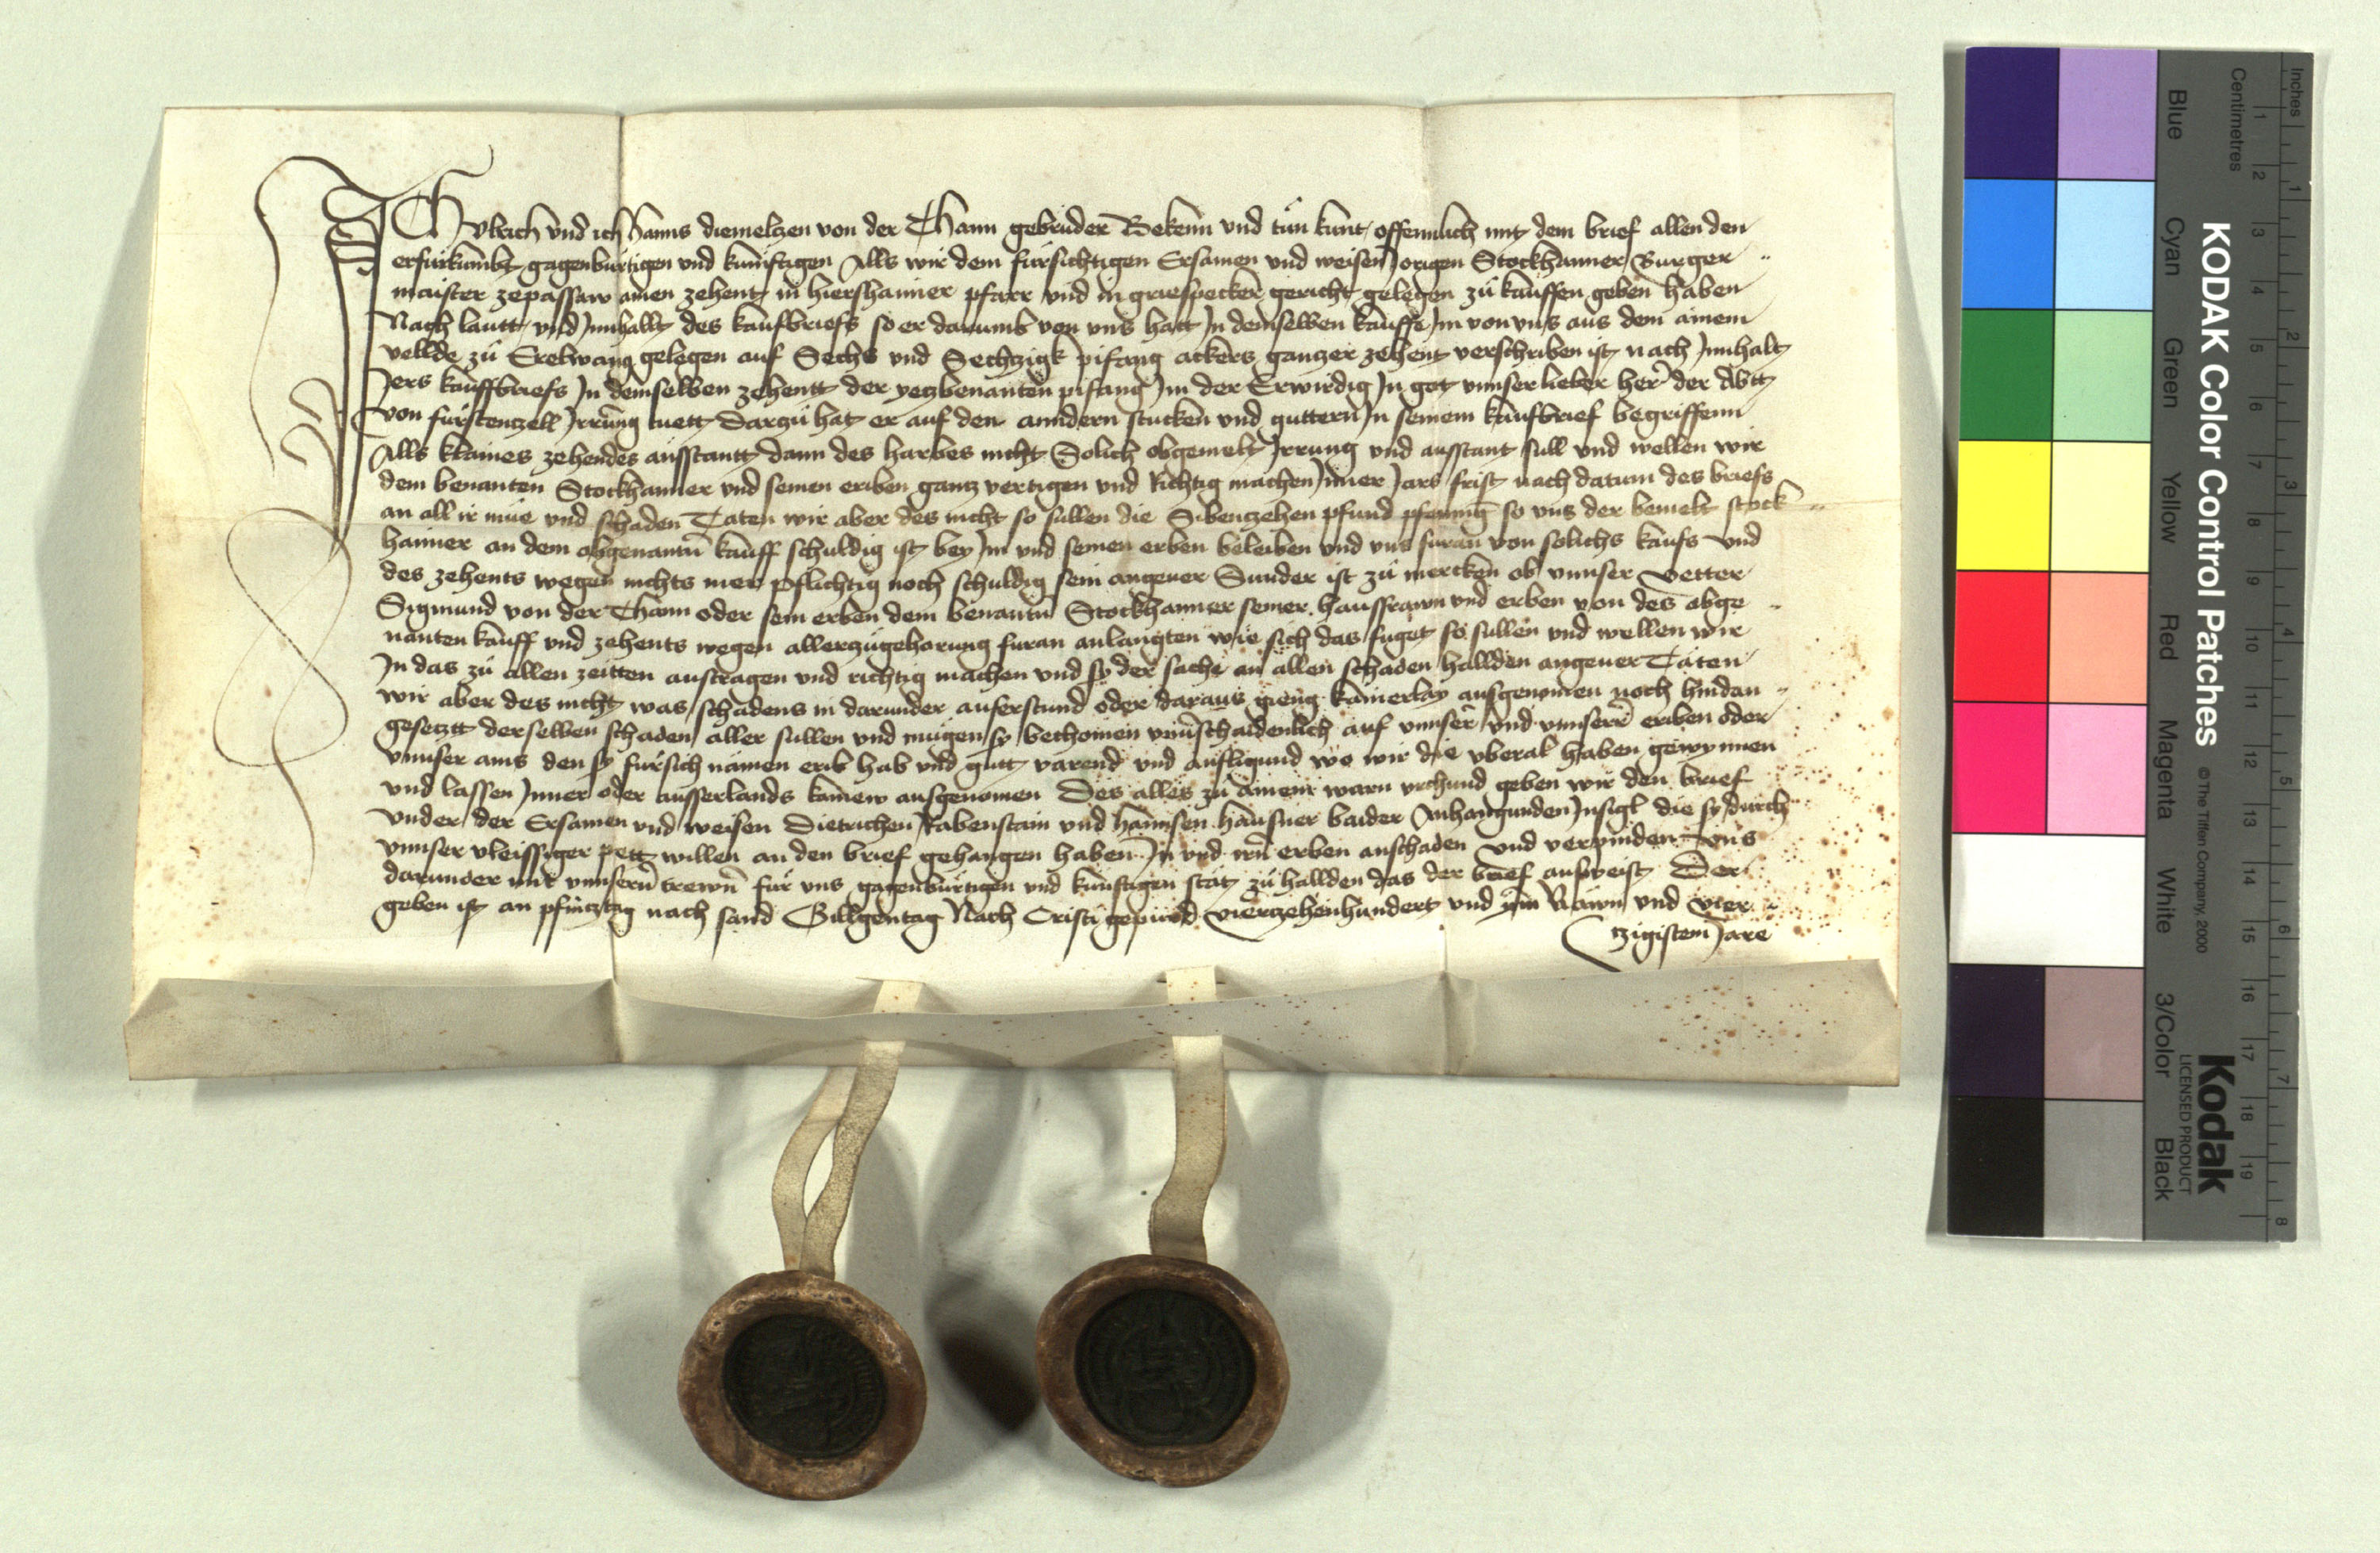 ICh Vlrich vnd ich Hanns diemelczen von der Thann gebruder Bekenn vnd tun kunt offennlich mit dem brief allen den
er furkumbt gagenburtigen vnd kunftigen Alls wir dem fursichtigen Ersamen vnd weisen Jorigen Stockhamer Burger
maister ze passaw ainen zehent in hiershaimer pfarr vnd in griespecker gericht gelegen zu kauffen geben haben
Nach lautt vnd Innhallt des kaufbriefs so er darumb von vns hatt In demselben kauffe Im von vns aus dem ainem
vellde zu Erelwang gelegen auf Sechs vnd Sechtzigk pifang ackers ganczer zehent verschriben ist nach Innhalt
Jers kauffbriefs In demselben zehentt der yeczbenanten pifang Im der Erwirdig In got vnnser lieber her der Abtt
von furstenzell Irrung tuett Darzu hat er auf den anndern stucken vnd guttern In seinem kaufbrief begriffenn
Alls klaines zehendes ausstantt dann des harbes nicht Solich obgemelt Irrung vnd ausstant sull vnd wellen wir
dem benanten Stockhamer vnd seinen eriben gancz vertigen vnd Richtig machen Inner Jars frist nach datum des briefs
an all ir mue vnd schaden Taten wir aber des nicht so sullen die Sibenzehen pfund pfening so vns der bemelt stock
haimer an dem obgenantn kauff schuldig ist bey Im vnd seinen erben beleiben vnd vns furan von solichs kaufs vnd
des zehents wegen nichts mer pflichtig noch schuldig sein angeuer Sunder ist zu mercken ob vnnser vetter
Sigmund von der Thann oder sein erben dem benantn Stockhamer seiner hausfrawn vnd erben von des obge
nanten kauff vnd zehents wegen aller zugeharung furan anlangten wie sich das fuget so sullen vnd wellen wir
In das zu allen zeitten austragen vnd richtig machen vnd sy der sache an allen schaden hallden angeuer Taten
wir aber des nicht was schadens in darunder auferstund oder daraus gieng kainerlay ausgenomen noch hindan
gesetzt derselben schaden aller sullen vnd mugen sy bechomen vnuerschaidenlich auf vnnser vnd vnnserr eriben oder
vnnser ains den sy fur sich namen erib hab vnd gutt varend vnd anfligund wo wir die vberal haben gewynnen
vnd lassen Inner oder ausserlands kainew ausgenomen Des alles zu ainem warn vrchund geben wir den brief
Vnder der Ersamen vnd weisen Dietrichen Rabenstain vnd hannsen hausner baider Anhangunden Insigl die sy durch
vnnser vleissiger pett willen an den brief gehangen haben In vnd irn erben anschaden vnd verpinden vns
darunder mit vnnsern trewn fur vns gagenburtigen vnd kunftigen stat zu hallden das der brief ausweist Der
geben ist an pfincztag nach sand Gillgentag Nach Cristi gepurd vierzehenhundert vnd ym Nawn vnd vier
tzigistem Jare
Inches
Centimetres
KODAK Color Control Patches
© The Tiffen Company, 2000
Kodak
LICENSED PRODUCT
Blue Cyan Green Yellow Red Magenta White 3/Color Black
1 2 3 4 5 6 7 8 9 10 11 12 13 14 15 16 17 18 19
1 2 3 4 5 6 7 8